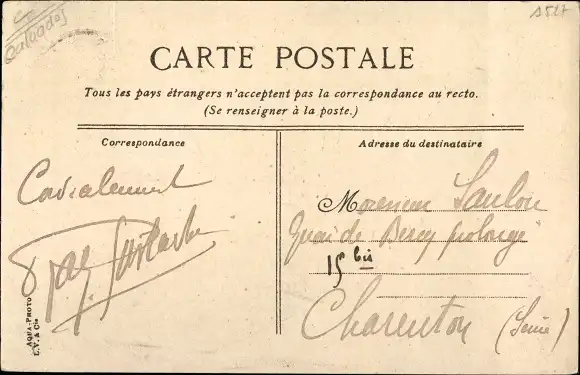 Calvados
1527
CARTE POSTALE
Tous les pays étrangers n'acceptent pas la correspondance au recto.
(Se renseigner à la poste.)
Correspondance
Cordialement
Adresse du destinataire
Monsieur Saulou
Quai de Bercy prolongé
15 bis
Charenton (Seine)
AQUA-PHOTO
L.V. & Cie